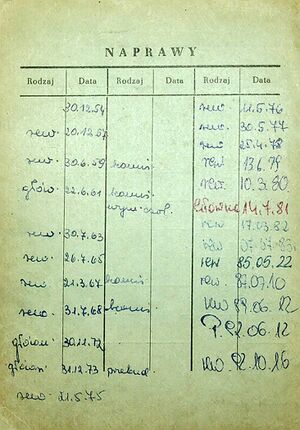 NAPRAWY
Rodzaj Data Rodzaj Rodzaj Data
30.12.54 rew. 11.5.76
rew. 20.12.57 rew. 30.5.77
rew. 25.4.78
rew. 30.6.59 rew 13.6.79
główn. 22.6.61 rew. 10.3.80.
Główna 14.7.81
rew 17.03.82
rew. 30.7.63 rew 07.07.83
rew. 26.7.65 rew 85.05.22
rew. 21.3.67 rew. 87.07.10
rew. 31.7.68 rew 89.06.12
P. 92.06.12
główna 30.11.72
główna 31.12.73 przebud. rew 92.10.16
rew. 21.5.75